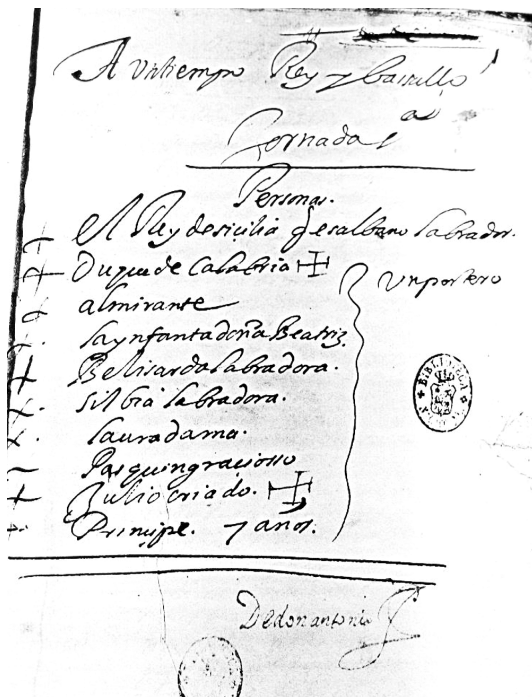 A Un tiempo Rey y Vasallo
Jornada 1ª
Personas.
El Rey de sicilia q es albano labrador.
Duque de Calabria
Un portero
almirante
la ynfanta doña Beatriz
Belisarda labradora.
silbia labradora.
laura dama.
Pasquin graciosso
Julio criado.
Principe. 7 años.
De don antonio
BIBLIOTECA